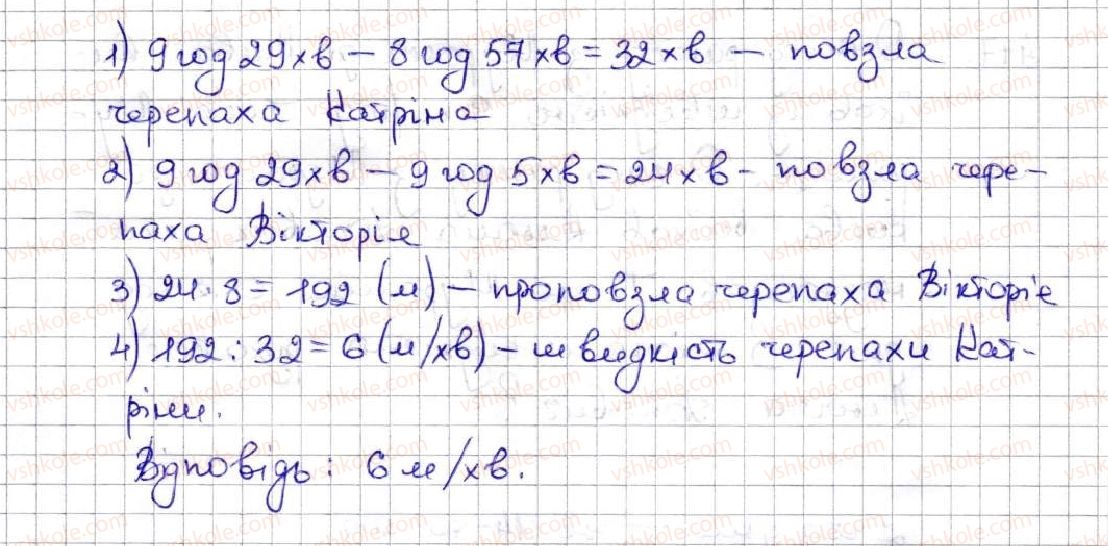 1) 9 год 29 хв – 8 год 57 хв = 32 хв – повзла
черепаха Катріна
2) 9 год 29 хв – 9 год 5 хв = 24 хв - повзла чере-
паха Вікторія
3) 24 · 8 = 192 (м) – проповзла черепаха Вікторіє
4) 192 : 32 = 6 (м/хв) – швидкість черепахи Кат-
ріни.
Відповідь: 6 м/хв.